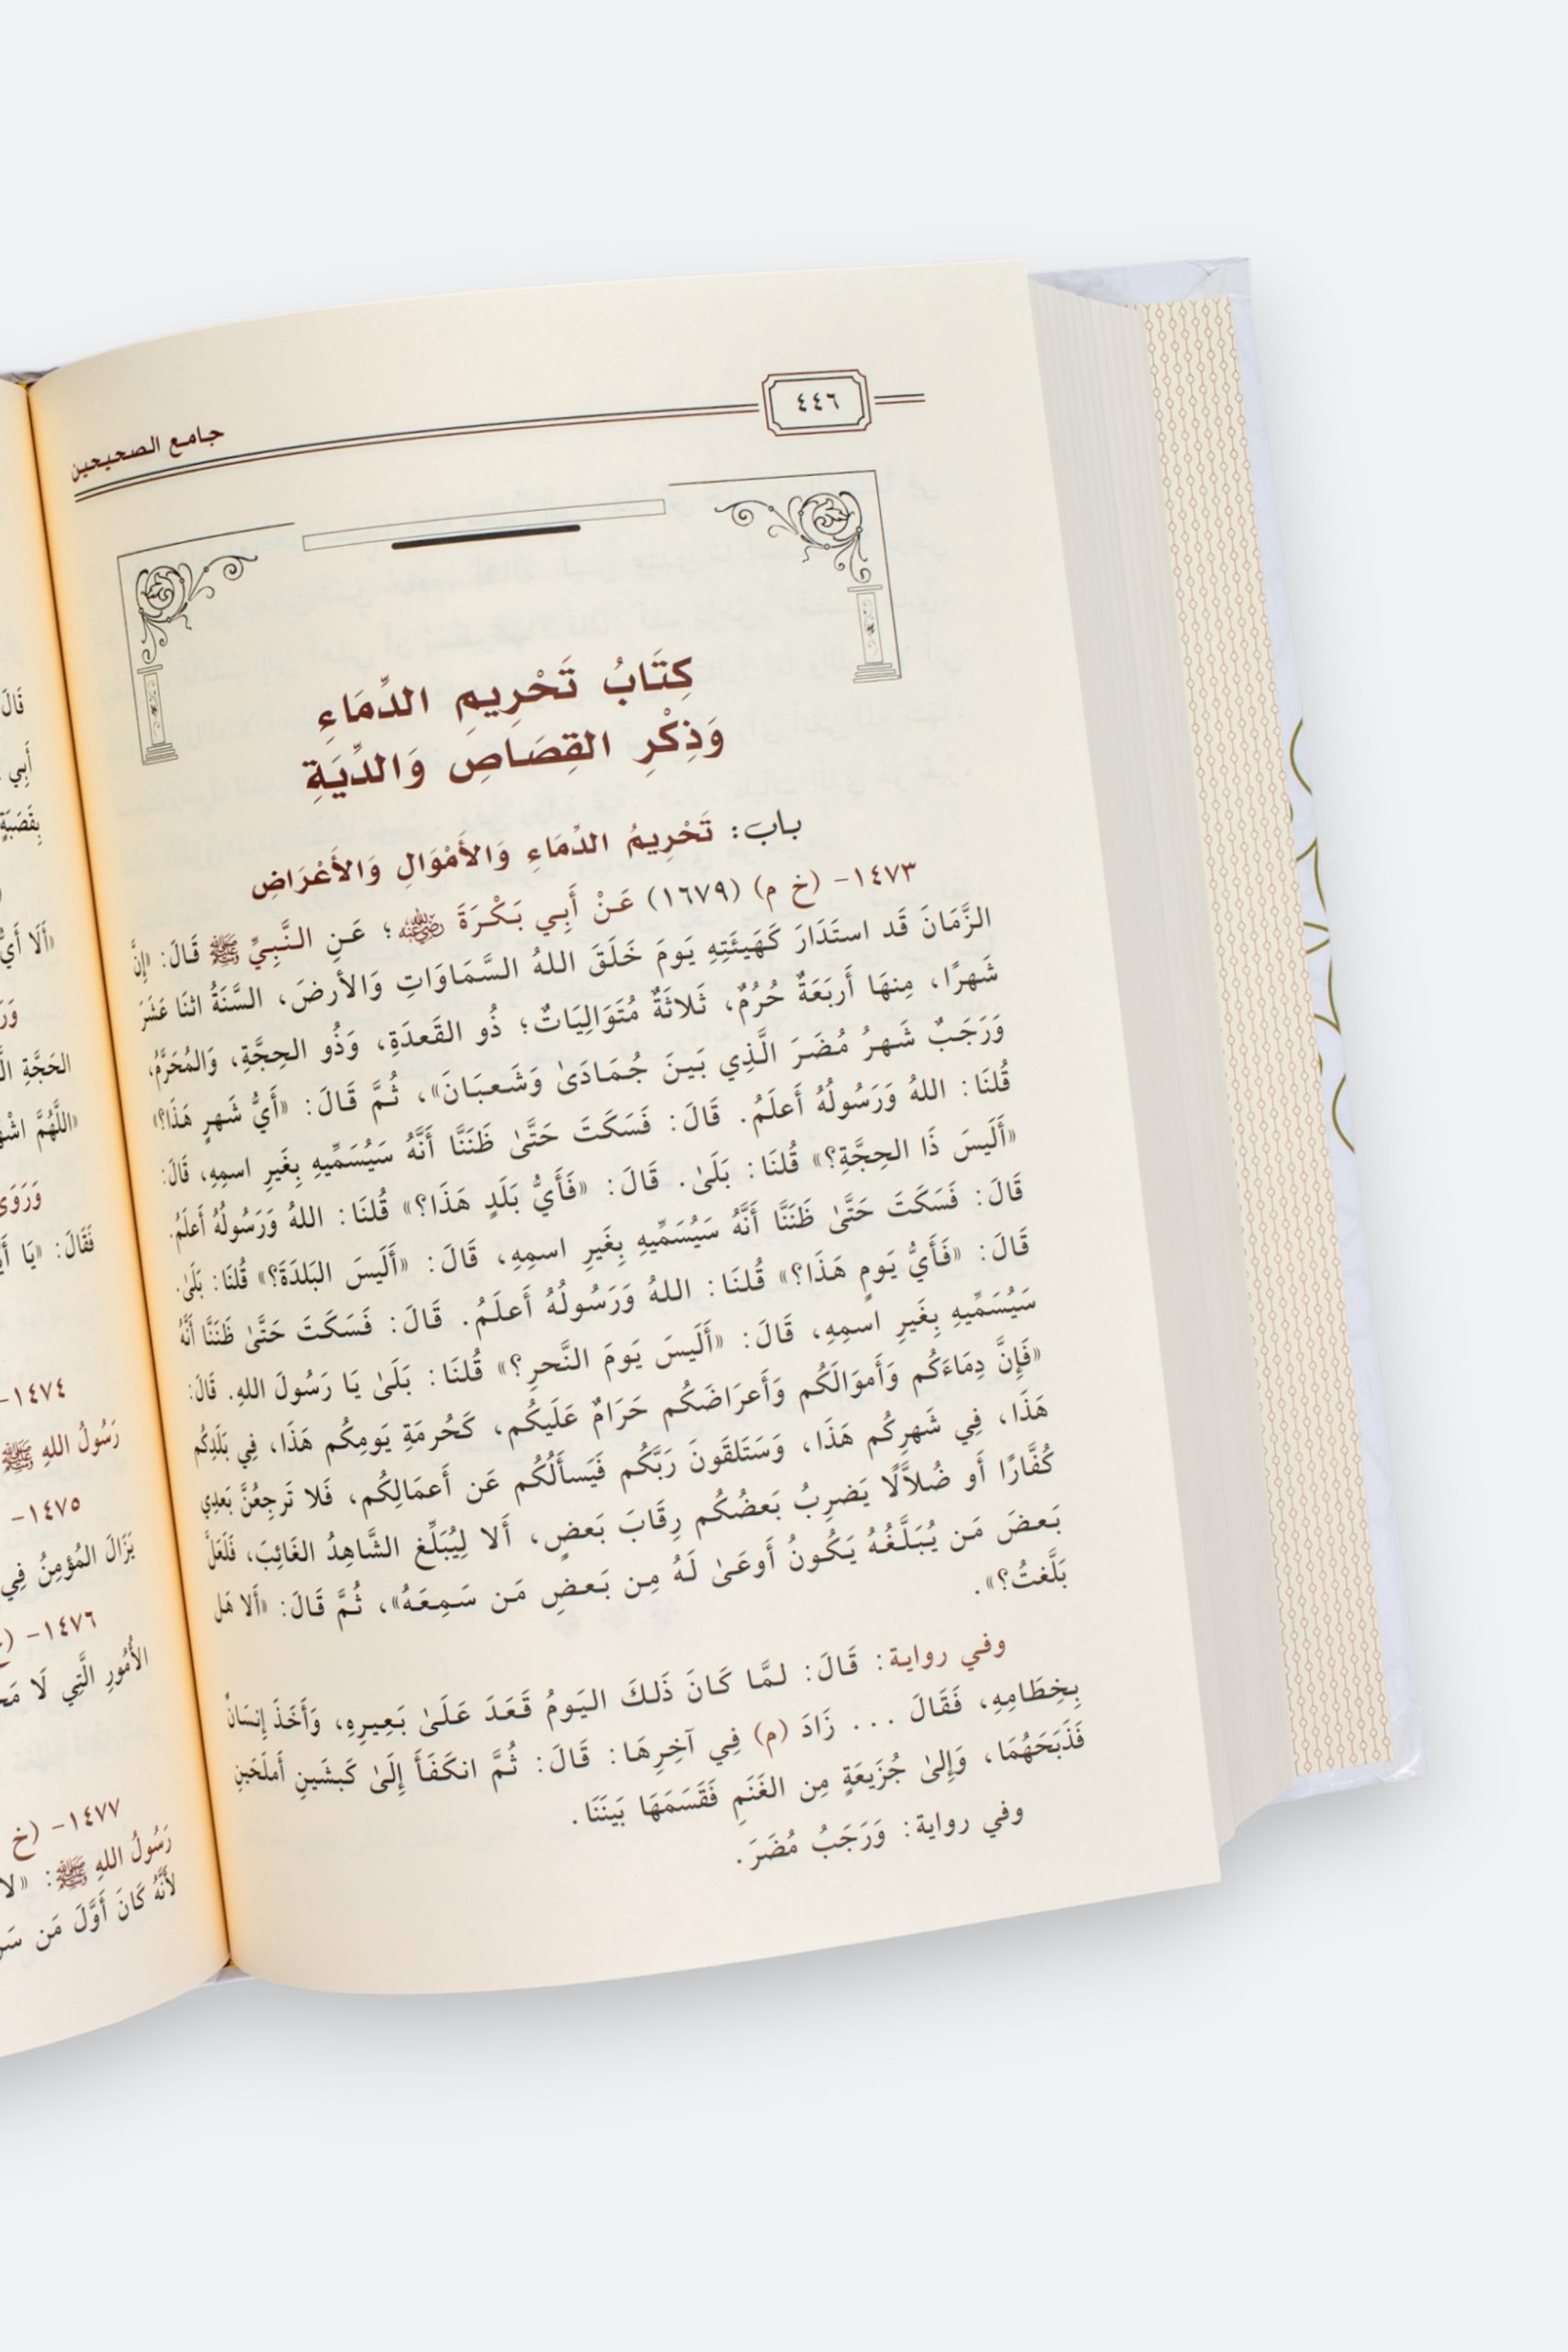 ٤٤٦
جامع الصحيحين
كِتَابُ تَحْرِيمِ الدِّمَاءِ
وَذِكْرِ القِصَاصِ وَالدِّيَةِ
باب: تَحْرِيمُ الدِّمَاءِ وَالأَمْوَالِ وَالأَعْرَاضِ
١٤٧٣- (خ م) (١٦٧٩) عَنْ أَبِي بَكْرَةَ ﵁؛ عَنِ النَّبِيِّ ﷺ قَالَ: «إِنَّ
الزَّمَانَ قَد استَدَارَ كَهَيئَتِهِ يَومَ خَلَقَ اللهُ السَّمَاوَاتِ وَالأرضَ، السَّنَةُ اثنَا عَشَرَ
شَهرًا، مِنهَا أَربَعَةٌ حُرُمٌ، ثَلاثَةٌ مُتَوَالِيَاتٌ؛ ذُو القَعدَةِ، وَذُو الحِجَّةِ، وَالمُحَرَّمُ،
وَرَجَبٌ شَهرُ مُضَرَ الَّذِي بَينَ جُمَادَىٰ وَشَعبَانَ»، ثُمَّ قَالَ: «أَيُّ شَهرٍ هَذَا؟»
قُلنَا: اللهُ وَرَسُولُهُ أَعلَمُ. قَالَ: فَسَكَتَ حَتَّىٰ ظَنَنَّا أَنَّهُ سَيُسَمِّيهِ بِغَيرِ اسمِهِ، قَالَ:
«أَلَيسَ ذَا الحِجَّةِ؟» قُلنَا: بَلَىٰ. قَالَ: «فَأَيُّ بَلَدٍ هَذَا؟» قُلنَا: اللهُ وَرَسُولُهُ أَعلَمُ.
قَالَ: فَسَكَتَ حَتَّىٰ ظَنَنَّا أَنَّهُ سَيُسَمِّيهِ بِغَيرِ اسمِهِ، قَالَ: «أَلَيسَ البَلدَةَ؟» قُلنَا: بَلَىٰ.
قَالَ: «فَأَيُّ يَومٍ هَذَا؟» قُلنَا: اللهُ وَرَسُولُهُ أَعلَمُ. قَالَ: فَسَكَتَ حَتَّىٰ ظَنَنَّا أَنَّهُ
سَيُسَمِّيهِ بِغَيرِ اسمِهِ، قَالَ: «أَلَيسَ يَومَ النَّحرِ؟» قُلنَا: بَلَىٰ يَا رَسُولَ اللهِ. قَالَ:
«فَإِنَّ دِمَاءَكُم وَأَموَالَكُم وَأَعرَاضَكُم حَرَامٌ عَلَيكُم، كَحُرمَةِ يَومِكُم هَذَا، فِي بَلَدِكُم
هَذَا، فِي شَهرِكُم هَذَا، وَسَتَلقَونَ رَبَّكُم فَيَسأَلُكُم عَن أَعمَالِكُم، فَلا تَرجِعُنَّ بَعدِي
كُفَّارًا أَو ضُلاَّلًا يَضرِبُ بَعضُكُم رِقَابَ بَعضٍ، أَلا لِيُبَلِّغ الشَّاهِدُ الغَائِبَ، فَلَعَلَّ
بَعضَ مَن يُبَلَّغُهُ يَكُونُ أَوعَىٰ لَهُ مِن بَعضِ مَن سَمِعَهُ»، ثُمَّ قَالَ: «أَلا هَل
بَلَّغتُ؟».
وفي رواية: قَالَ: لمَّا كَانَ ذَلكَ اليَومُ قَعَدَ عَلَىٰ بَعِيرِهِ، وَأَخَذَ إِنسَانٌ
بِخِطَامِهِ، فَقَالَ ... زَادَ (م) فِي آخِرِهَا: قَالَ: ثُمَّ انكَفَأَ إِلَىٰ كَبشَينِ أَملَحَينِ
فَذَبَحَهُمَا، وَإِلىٰ جُزَيعَةٍ مِن الغَنَمِ فَقَسَمَهَا بَينَنَا.
وفي رواية: وَرَجَبُ مُضَرَ.
قَالَ
أَبِي
بِقَصَبَةٍ
«أَلَا أَيُّ
الحَجَّةِ
«اللَّهُمَّ
وَرَوَى
فَقَالَ: «يَا
١٤٧٤-
رَسُولُ اللهِ ﷺ
١٤٧٥-
يَزَالَ المُؤمِنُ فِي
١٤٧٦- (
الأُمُورِ الَّتِي لَا
١٤٧٧- (خ
رَسُولُ اللهِ ﷺ: «لا
لأَنَّهُ كَانَ أَوَّلَ مَن